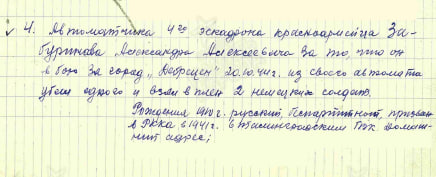 √ 4. Автоматчика 4го эскадрона красноармейца За-
буринова Александра Алексеевича за то, что он
в бою за город „Дебрецен" 20.10.44г. из своего автомата
убил одного и взял в плен 2 немецких солдат.
Рождения 1910г. русский, беспартийный, призван
в РККА в 1941г. в Сталинградским РВК домаш-
ний адрес;